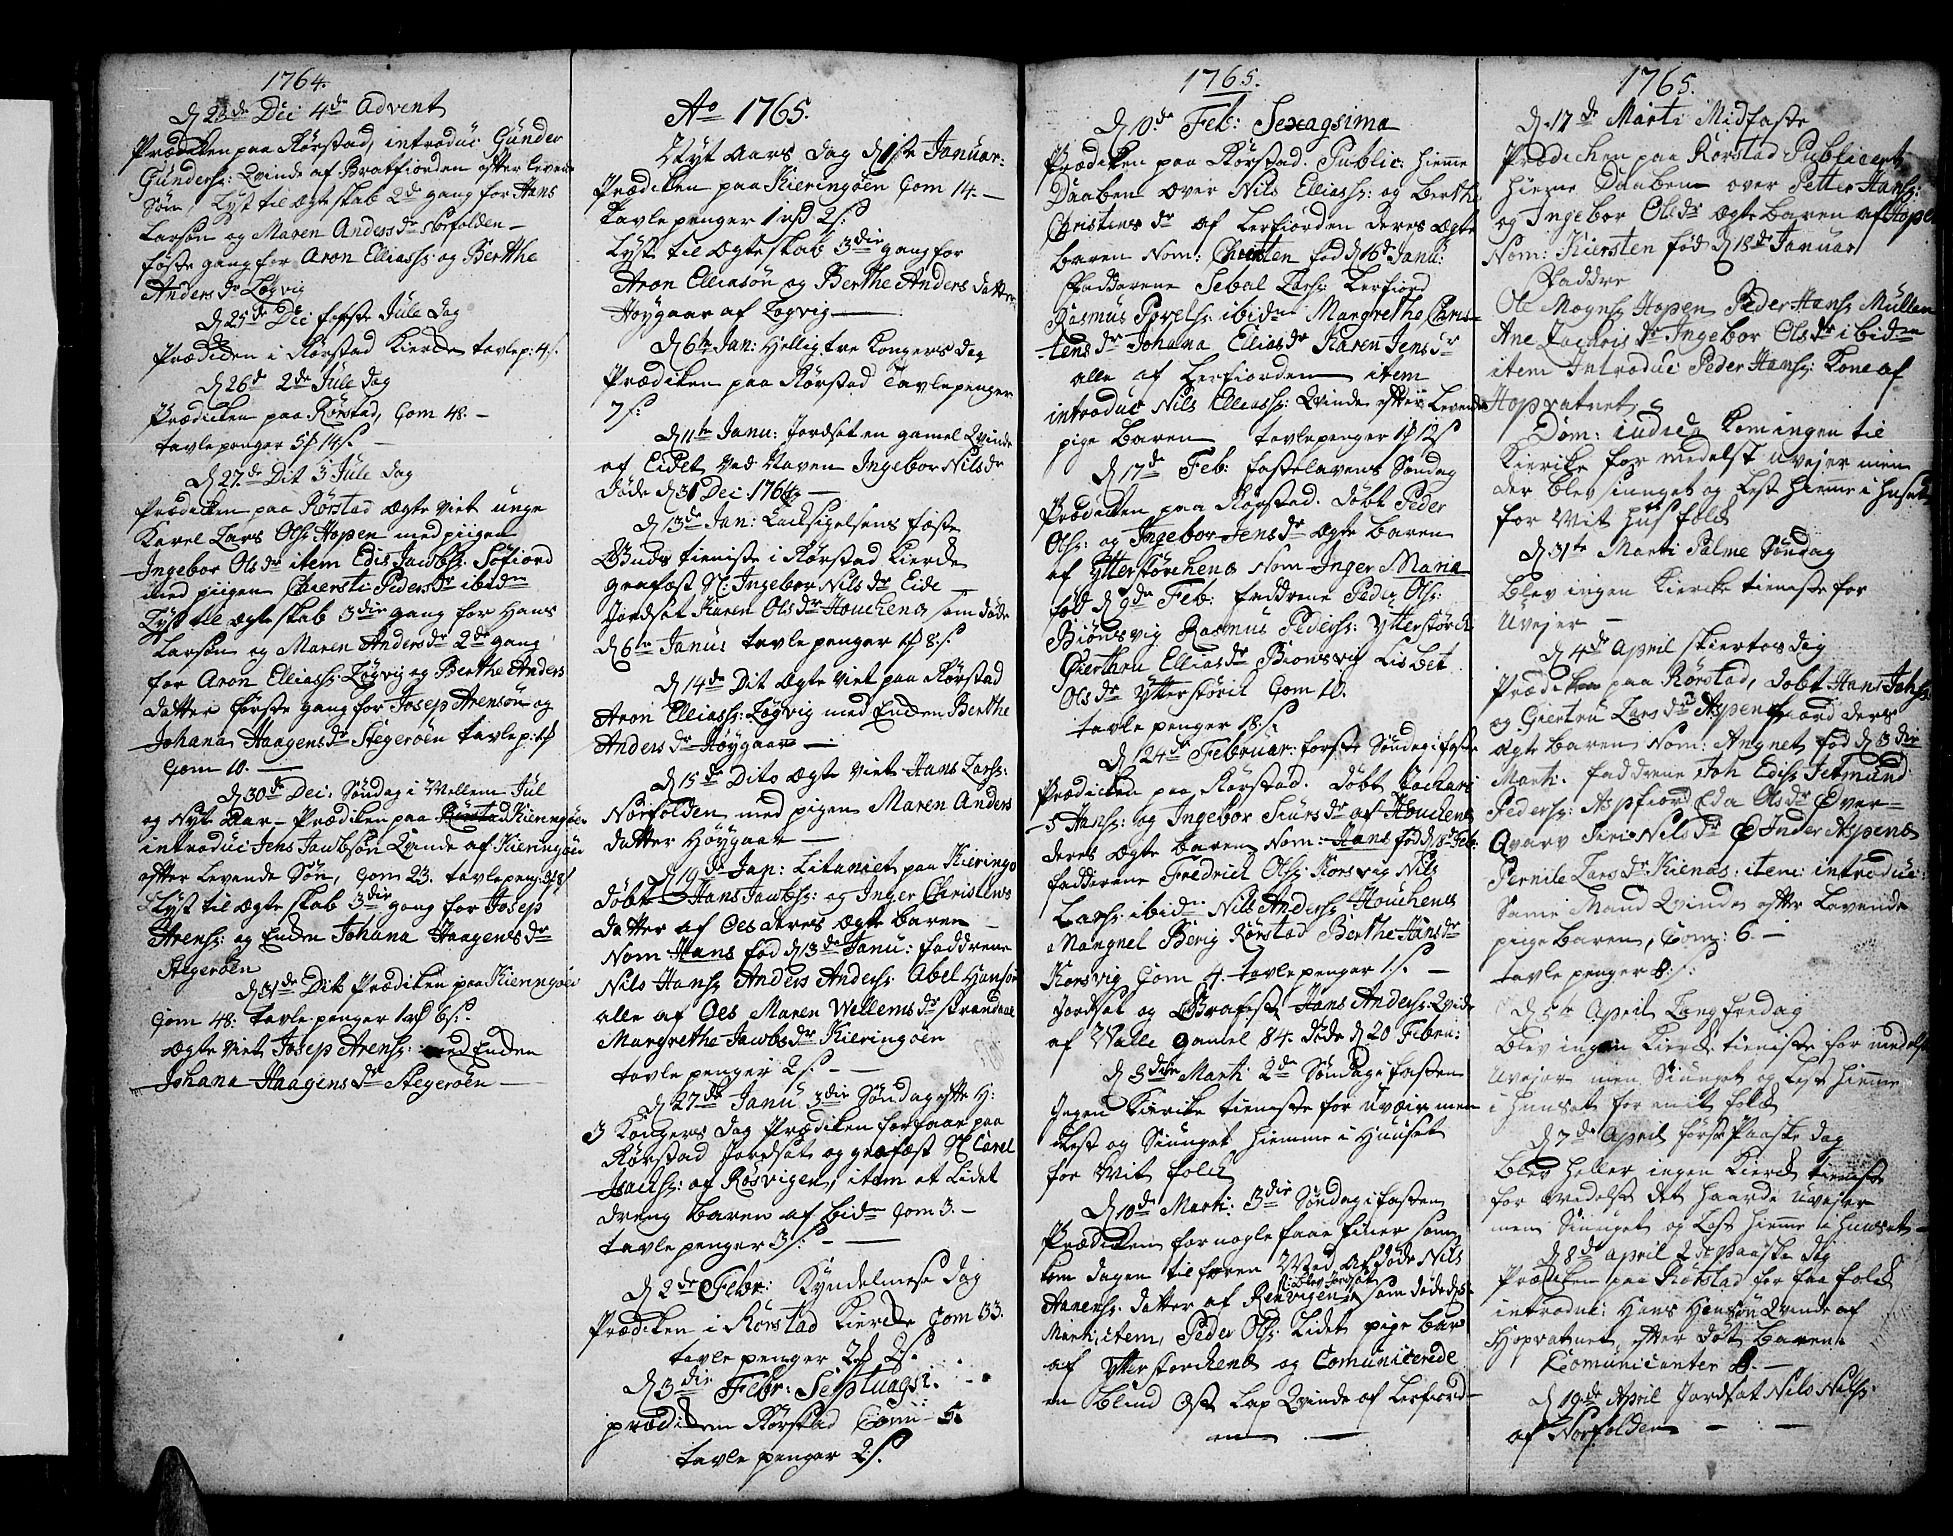 1764.
D 23de Dec 4de Advent
Prædiken paa Rørstad, introduc Gunder
Gunders: Qvinde af Bratfiorden efter levende
Søn, Lyst til ægteskab 2de gang for Hans
Larsøn og Maren Andersdr Norfolden -
føste gang for Aron Elliass: og Berthe
Andersdr Løgvig
D 25de Dec første Jule dag
Prædiken i Rørstad Kierche tavlep: 4 s.
D 26de 2de Jule dag
Prædiken paa Rørstad, Com 48. -
tavlepenger 5 14 s. -
D 27de Dit 3 Jule dag
Prædiken paa Rørstad ægteviet unge
Karel Lars Ols: Hopen med piigen
Ingebor Olsdr item Edis Jacobs: Søfiord
med piigen Chiersti Pedersdr ibidm
Lyst til ægteskab 3die gang for Hans
Larsøn og Maren Andersdr 2de gang
for Aron Elliass: Løgvig og Berthe Anders
datter første gang for Josep Arensøn og
Johana Haagensdr Stegerøen tavlep:
Com 10. -
D 30de Dec: Søndag i Mellem Jul
og Nyt Aar - Prædiken paa Kieringøe
introduc Jens Jacobsøn Qvinde af Kieringøen
efter levende Søn, Com 23. tavlepeng:
Lyst til ægteskab 3die gang for Josep
Arens: og Enden Johana Haagensdr
Stegerøen
D 31de Dit Prædiken paa Kieringøen
Com 48. tavlepenger 6 s.
ægteviet Josep Arens: med Enden
Johana Haagensdr Stegerøen -
Ao 1765.
Nyt Aars dag D 1ste Januar:
Prædiken paa Kieringøen Com 14. -
tavlepenger 1 2 s:
Lyst til ægteskab 3die gang for
Aron Elliasøn og Berthe Anders datter
Høygaar af Løgvig -
D 6te Jan: Hellig tre Kongers dag
Prædiken paa Rørstad Tavlepenger
7 s:
D 11te Janu: Jordsat en gamel Qvinde
af Eidet ved Naven Ingebor Nilsdr
døde D 31 Dec 1764 -
D 13de Jan:
Guds tieniste i Rørstad Kierche
grafæst Sl: Ingebor Nilsdr Eide -
Jordsat Karen Olsdr Houchenes som døde
D 6te Janus tavlepenger 8 s.
D 14de Dit ægteviet paa Rørstad
Aron Elliass: Løgvig med Enden Berthe
Andersdr Høygaar -
D 15de Dito ægteviet Hans Larss:
Norfolden med pigen Maren Anders
datter Høygaar -
D 19de Jan: Litaniet paa Kieringø
døbt Hans Jacobs: og Inger Christens
datter af Oes deres ægte baren -
Nom Hans fød D 13de Janu: faddrene
Nils Hans: Anders Anders: Abel Hansøn
alle af Oes Maren Wellemsdr Strandaae
Margrethe Jacobsdr Kieringøen
tavlepenger 2 s. -
D 27de Janu 3die Søndag efter H:
3 Kongers dag Prædiken for faae paa
Rørstad Jordsat og grafæst Sl: Carel
Isachs: af Røsvigen, item et Lidet
dreng baren af bidm Com 3. -
tavlepenger 3 s: -
D 2de Febr: Kyndelmese dag
Prædiken i Rørstad Kierche Com 33.
tavlepenger 2 2 s.
D 3die Febr: Septuagsi.
prædiken Rørstad Comu - 5.
tavlepenger 2 s.
1765.
D 10de Feb: Sexagsima
Prædiken paa Rørstad. Public: hieme
Daaben over Nils Elliass: og Berthe
Christensdr af Lerfiorden deres ægte
baren Nom: Christen fød D 6de Janu:
Fadderene Sebal Lars: Lerfiord
Rasmus Povels: ibidm Margrethe Chris-
tensdr Johana Eliasdr Karen Jensdr
alle af Lerfiorden item
introduc Nils Elliass: Qvinde efter Levende
pige baren tavlepenger 12 s
D 17de Feb: fastelavens Søndag
Prædiken paa Rørstad. døbt Peder
Ols: og Ingebor Jensdr ægte baren
af Ytterstørchenes Nom Inger Maria
fød D 9de Feb: faddrene Peder Ols:
Biørnsvig Rasmus Peders: Ytterstørch
Gierthru Elliasdr Biørnsvig Lisbet
Olsdr Ytterstørch Com 10.
tavlepenger 18 s.
D 24de Februar: første Søndag i faste
Prædiken paa Rørstad. døbt Zachari-
s Hans: og Ingebor Siursdr af Houchenes
deres ægte baren Nom: Hans fød D 18 Feb:
fadderene Fredrich Ols: Korsvig Nils
Lars: ibidm Nils Anders: Houchenes
Mangnel Berig Rørstad Berthe Hansdr
Korsvig Com 4. tavlepenger 1 s. -
Jordsat og Grafæst Hans Anders: Qvinde
af Valle gamel 84. døde D 20 Febru:
D 3die Marti 2de Søndag i fasten
Ingen Kierike tieneste for uveir men
Lest og Siunget hiemme i Huuset
for Mit folch
D 10de Marti: 3die Søndag i fasten
Prædiken for nogle faae finer som
kom dagen tilforen Med afdøde Nils
blev Jordsat
Hanens: datter af Renvigen som døde D 5
Marti, item, Peder Ols: Lidet pige bar
af Ytterstorchenes og Comunicerede
en blind Øst Lap Qvinde af Lerfiord-
en -
1765.
D 17de Marti Midfaste
Prædichen paa Rørstad Publicert
hieme Daaben over Petter Hans:
og Ingebor Olsdr ægte baren af Hopen
Nom: Kiersten fød D 18de Januar
Faddre
Ole Mogns: Hopen Peder Hans: Mullen
Ane Zachrisdr Ingebor Olsdr ibidm
item Introduc Peder Hans: Kone af
Hopvatnet
Dom: iudica Kom ingen til
Kierike formedelst Uvejer men
der blev siunget og Lest hieme i huset
for Mit Husfolch
D 31te Marti Palme Søndag
blev ingen Kierche tieneste for
Uvejer -
D 4de April skiertorsdag
Prædiken paa Rørstad, døbt Hans Johs:
og Giertru Larsdr Aspenfiord deres
ægte baren Nom: Angnet fød D 3die
Marti. faddrene Joh Edis: Jetmund
Peders: Aspfiord Eda Olsdr Øver-
Qvarv Siri Nilsdr Inder Aspenes
Pernile Larsdr Kienes: item: introduc:
Same Mand Qvinde efter Lavende
pige baren, Com: 6 -
tavlepenger 8 s:
D 5te April Langfredag
blev ingen Kierche tieniste for medelst
Uvejer men Siunget og Lest hieme
i huuset for mit folch
D 7de April første Paaske dag
blev heller ingen Kierch tieniste
for medelst det haarde Uvejer
men Siunget og Lest hieme i huuset -
D 8de April 2de paaske dag
Prædiken paa Rørstad for faa folch
introduc: Hans Hansøn Qvinde af
Hopvatnet efter døt baren.
Comunicanter 8. -
D 19de April Jordsat Nils Nils:
af Norfolden - -